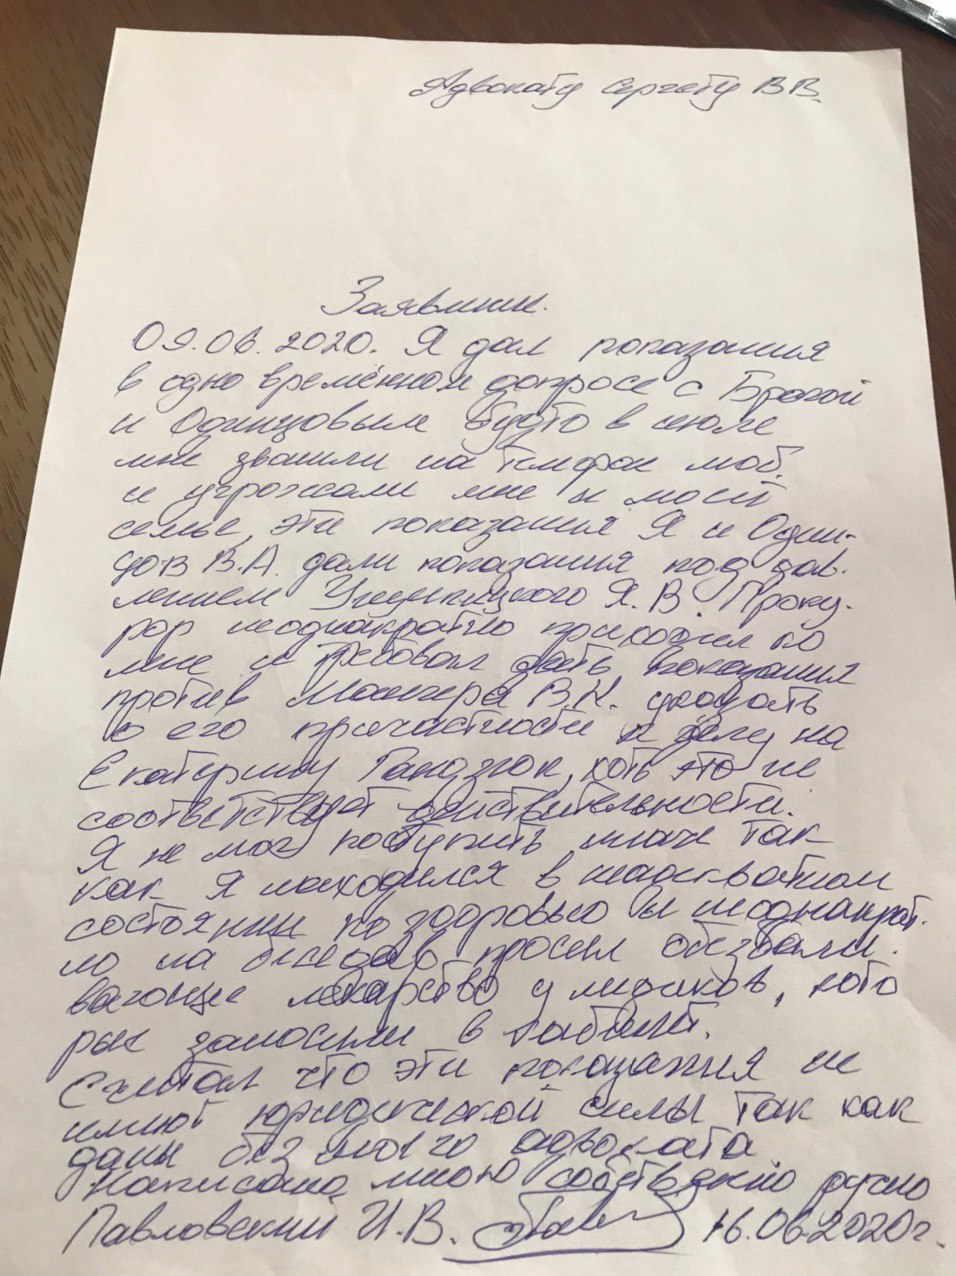 Адвокату Сергету В.В.
Заявление.
09.06.2020. Я дал показания
в одно временном допросе с Брагой
и Одинцовым будто в июле
мне звонили на телефон моб.
и угрожали мне и моей
семье, эти показания Я и Один-
цов В.А. дали показания под дав-
лением Ушиницкого Я. В. Проку-
рор неоднократно приходил ко
мне и требовал дать показания
против Мангера В.Н. указать
о его причастности к делу на
Екатерину Гандзюк, хоть это не
соответствует действительности.
Я не мог поступить иначе так
как Я находился в неадекватном
состоянии по здоровью и неоднократ-
но на беседах просил обезболи-
вающие лекарство у медиков, кото
рые заносили в кабинет.
Считал что эти показания не
имеют юридической силы так как
даны без моего адвоката
Написано мною собственно ручно
Павловский И.В. 16.06.2020г.